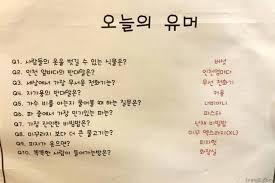 오늘의 유머
Q1. 사람들의 옷을 벗길 수 있는 식물은? 버섯
Q2. 인천 앞바다의 반대말은? 인천엄마다
Q3. 세상에서 가장 무서운 전화기는? 무선 전화기
Q4. 자가용의 반대말은? 커용
Q5. 가수 비를 아는지 물어볼 때 하는 질문은? 너비아니
Q6. 파 중에서 가장 인기있는 파는? 파스타
Q7. 가장 잔인한 비빔밥은? 산채 비빔밥
Q8. 미꾸라지 보다 더 큰 물고기는? 미꾸 엑스라지(XL)
Q9. 피자가 웃으면? 피자헛
Q10. 똑똑한 사람이 들어가는방은? 화장실